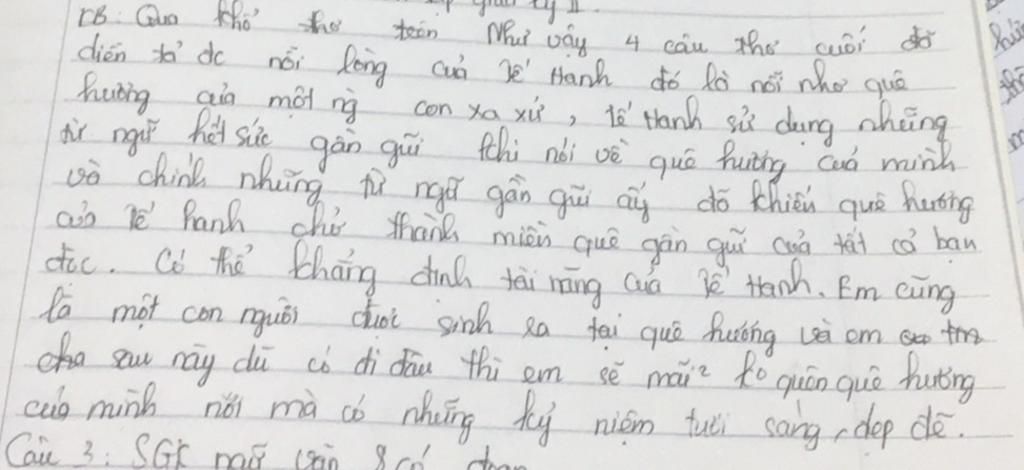 KB: Qua khổ thơ trên Như vậy 4 câu thơ cuối đã
diễn tả đc nỗi lòng của Tế Hanh đó là nỗi nhớ quê
hương của một ng con xa xứ, Tế Hanh sử dụng những
từ ngữ hết sức gần gũi khi nói về quê hương của mình
và chính những từ ngữ gần gũi ấy đã khiến quê hương
của Tế hanh chở thành miền quê gần gũi của tất cả bạn
đọc. Có thể khẳng định tài năng của Tế Hanh. Em cũng
là một con người được sinh ra tại quê hương và em
sau này dù có đi đâu thì em sẽ mãi² ko quên quê hương
của mình nơi mà có những ký niệm tươi sáng, đẹp đẽ.
Câu 3: SGK ngữ văn 8 có